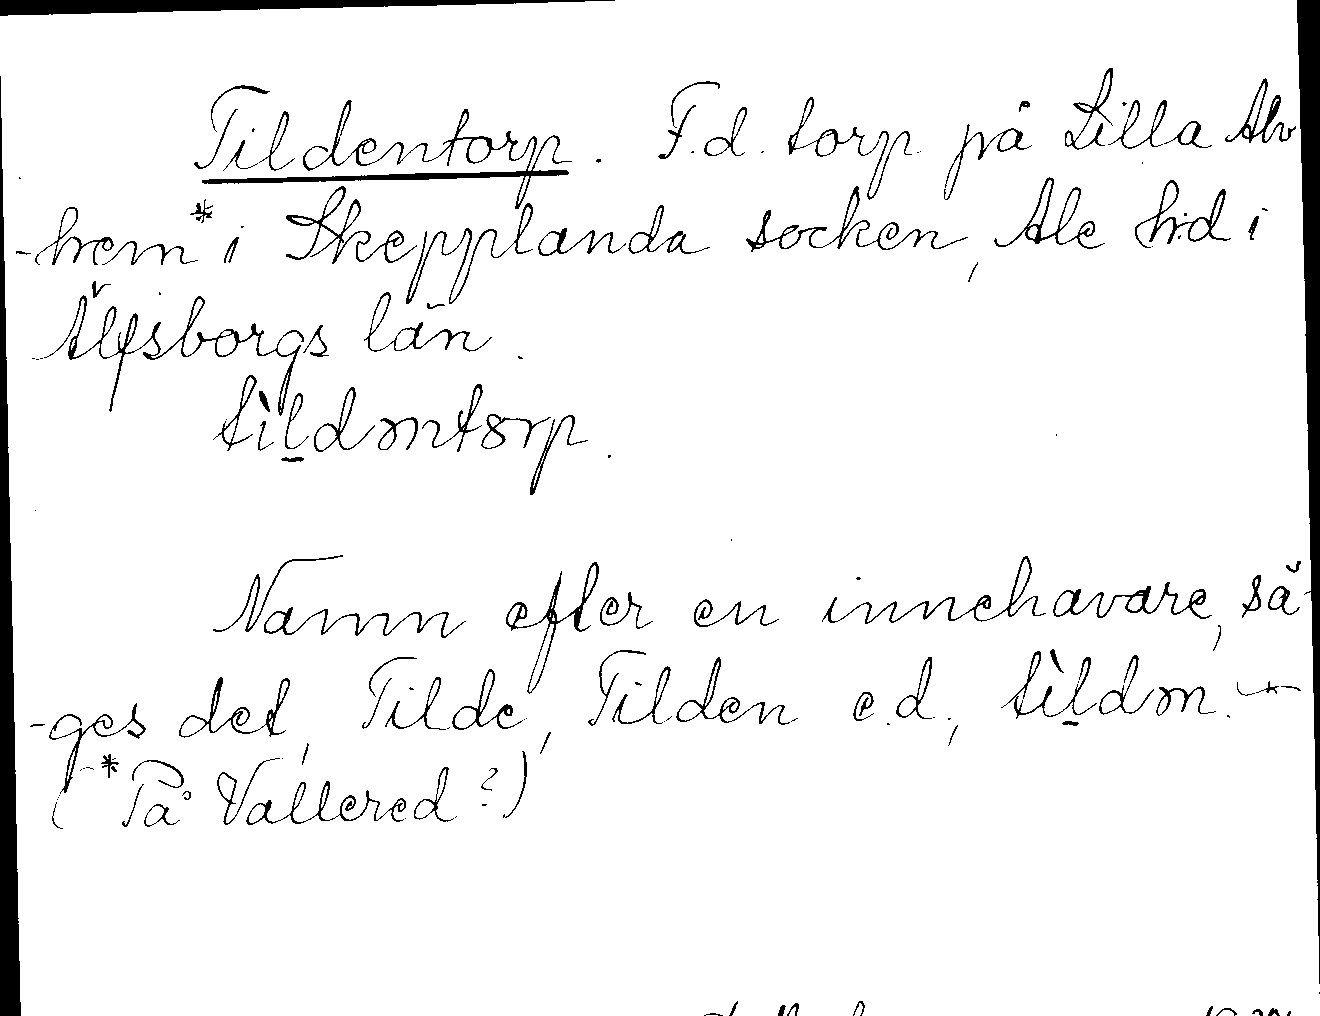 Tildentorp. F.d. torp på Lilla Alv
-hem* i Skepplanda socken, Ale hd i
Älfsborgs län.
tìl̲dəntorp.
Namn efter en innehavare, sä-
-ges det, Tilde, Tilden e.d., tìl̲dən.
(*På Vallered?)